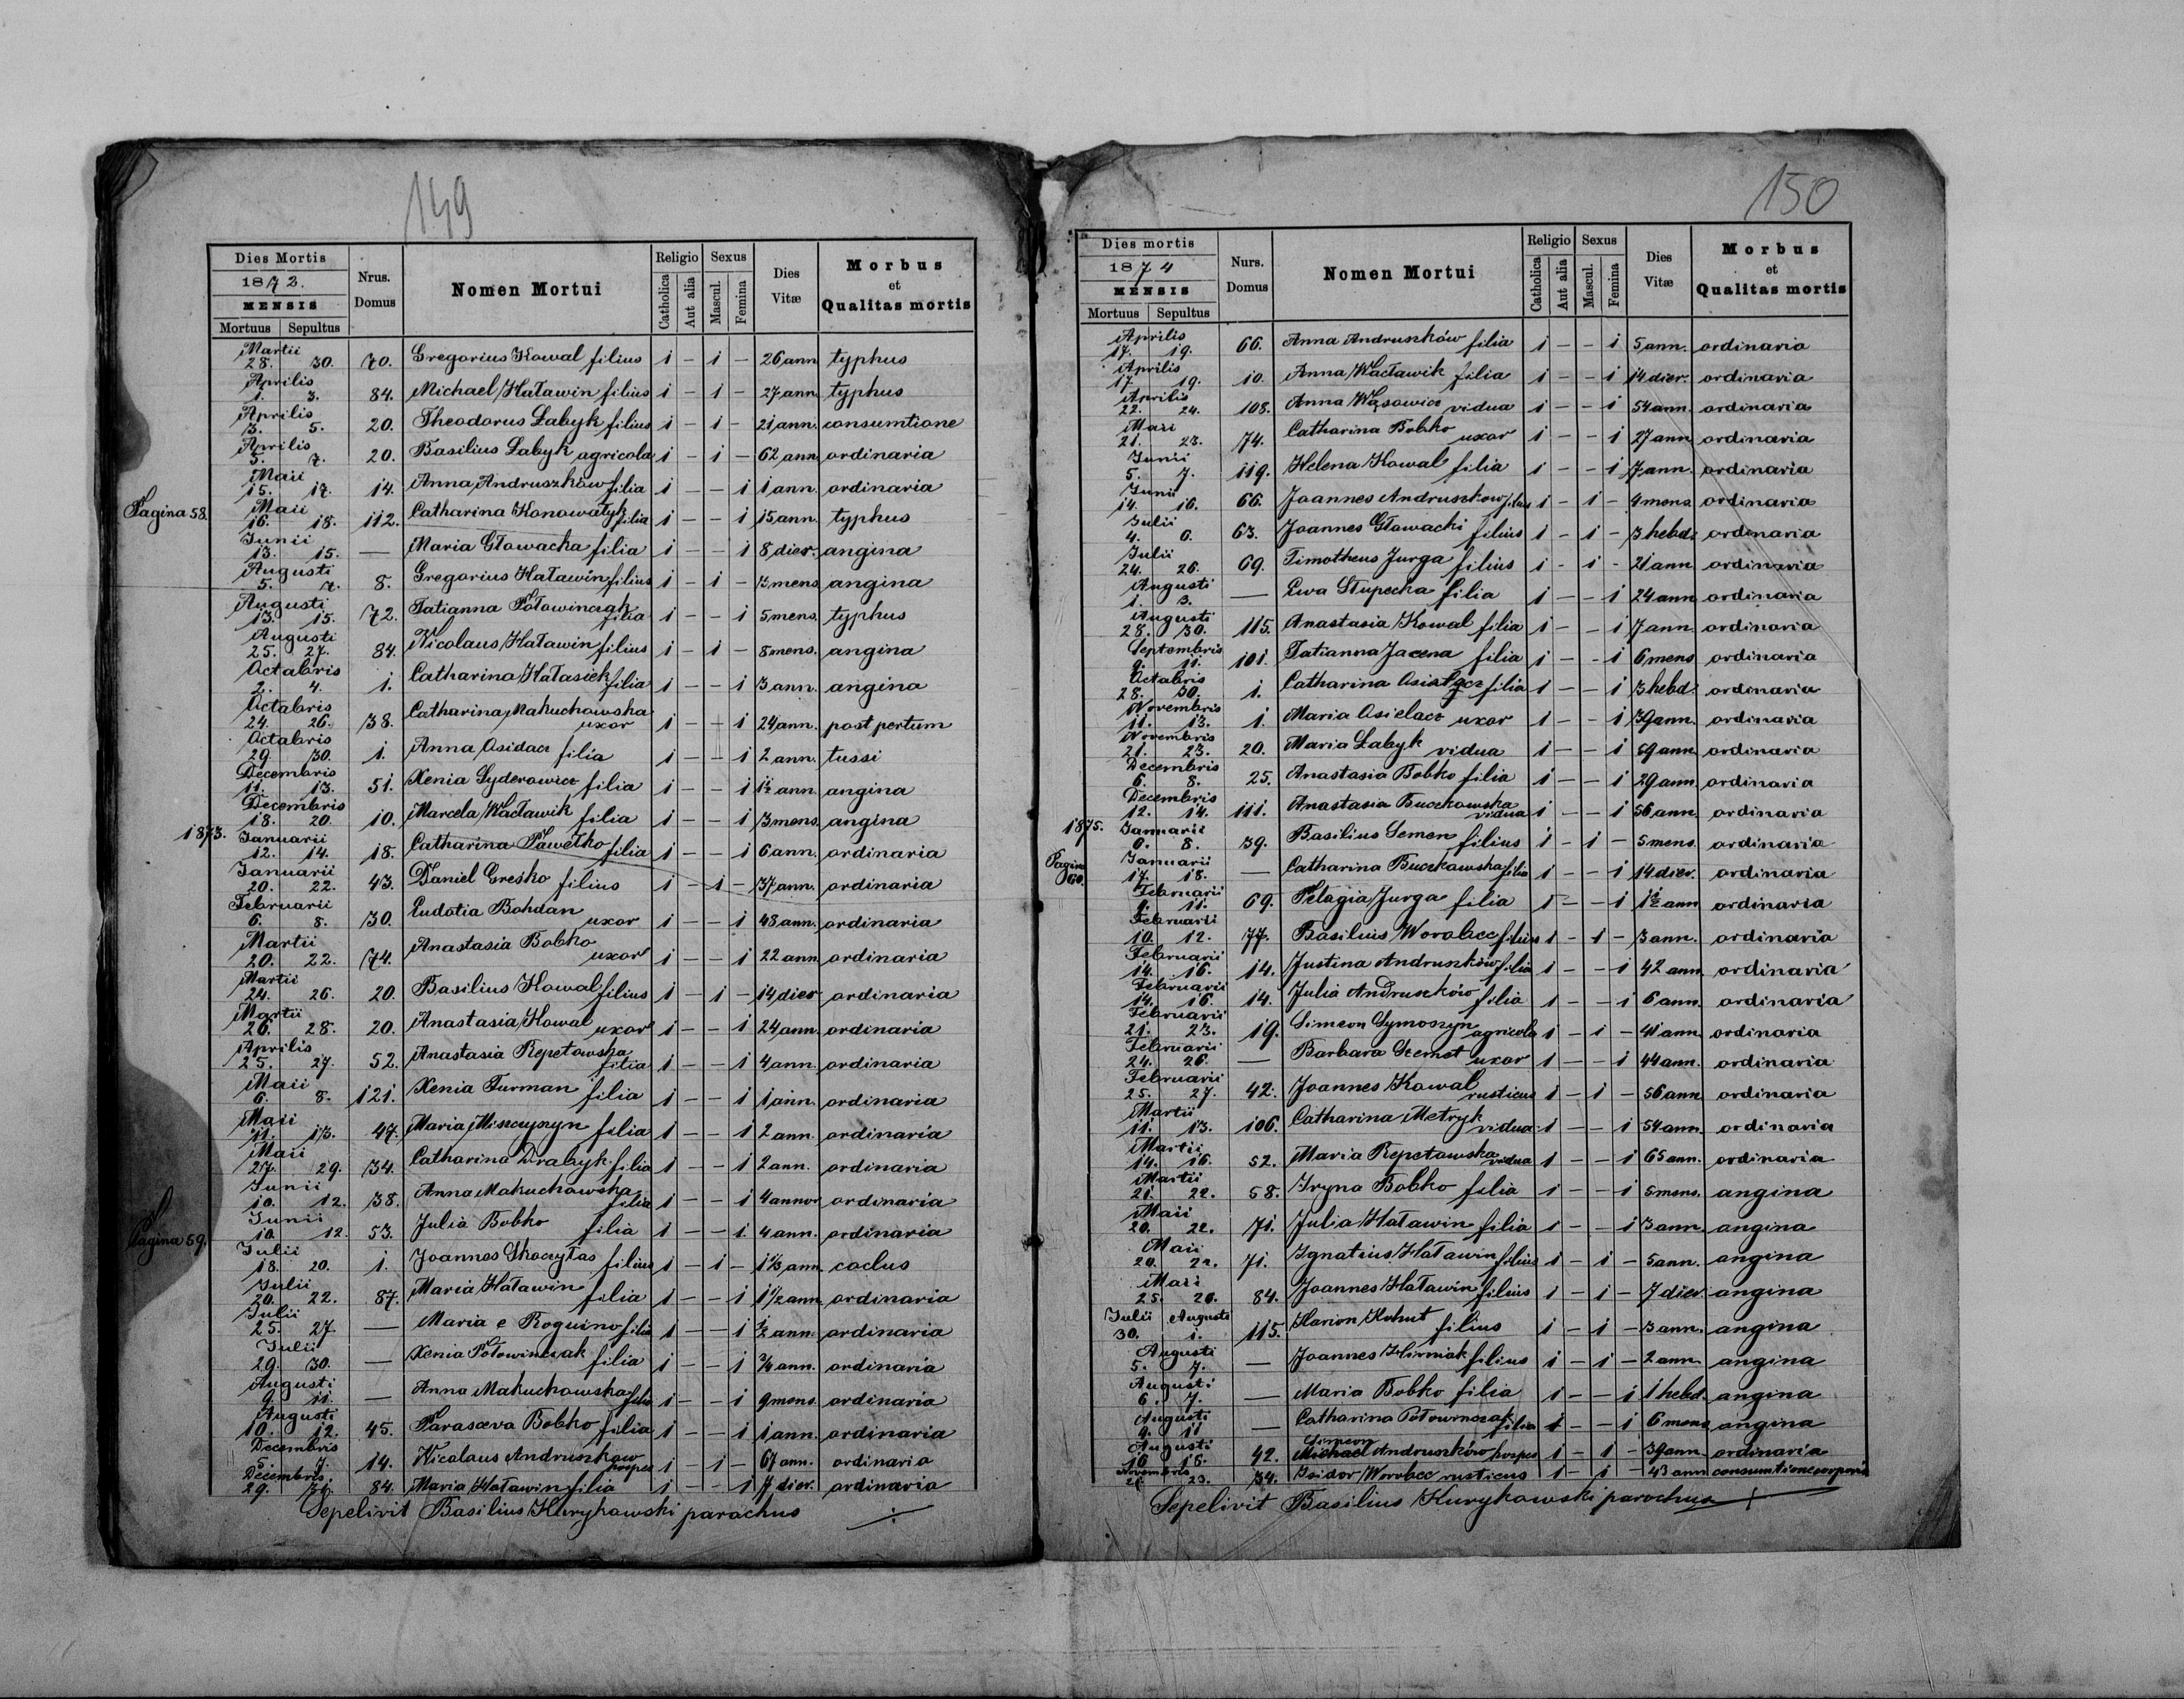 149
Dies Mortis
1872.
MENSIS
Mortuus Sepultus
Nrus. Domus
Nomen Mortui
Religio
Catholica Aut alia
Sexus
Mascul. Femina
Dies Vitæ
Morbus et Qualitas mortis
Martii
28. 30. 70. Gregorius Kowal filius 1 - 1 - 26 ann typhus
Aprilis
1. 3. 84. Michael Hatawin filius 1 - 1 - 27 ann typhus
Aprilis
3. 5. 20. Theodorus Łabyk filius 1 - 1 - 21 ann. consumtione
Aprilis
5. 7. 20. Basilius Łabyk agricola 1 - 1 - 62 ann ordinaria
Maii
15. 17. 14. Anna Andruszków filia 1 - - 1 1 ann. ordinaria
Pagina 58.
Maii
16. 18. 112. Catharina Konowatyk filia 1 - - 1 15 ann. typhus
Junii
13. 15. — Maria Głowacka filia 1 - - 1 8 dier. angina
Augusti
5. 7. 8. Gregorius Hatawin filius 1 - 1 - mens angina
Augusti
13. 15. 72. Tatianna Połowinczak filia 1 - - 1 5 mens. typhus
Augusti
25. 27. 84. Nicolaus Hatawin filius 1 - 1 - 8 mens. angina
Octobris
2. 4. 1. Catharina Hatasick filia 1 - - 1 3 ann. angina
Octobris
24. 26. 38. Catharina Makuchowska uxor 1 - - 1 24 ann. post pertum
Octobris
29. 30. 1. Anna filia 1 - - 1 2 ann. tussi
Decembris
11. 13. 51. Xenia Syderowicz filia 1 - - 1 1½ ann. angina
Decembris
18. 20. 10. Marcela Wacławik filia 1 - - 1 3 mens. angina
1873. Januarii
12. 14. 18. Catharina Pawełko filia 1 - - 1 6 ann. ordinaria
Januarii
20. 22. 43. Daniel Greśko filius 1 - 1 - 37 ann. ordinaria
Februarii
6. 8. 30. Eudotia Bohdan uxor 1 - - 1 48 ann. ordinaria
Martii
20. 22. 74. Anastasia Bobko uxor 1 - - 1 22 ann ordinaria
Martii
24. 26. 20. Basilius Kowal filius 1 - 1 - 14 dier ordinaria
Martii
26. 28. 20. Anastasia Kowal uxor 1 - - 1 24 ann. ordinaria
Aprilis
25. 27. 52. Anastasia Repetowska filia 1 - - 1 4 ann. ordinaria
Maii
6. 8. 121. Xenia Furman filia 1 - - 1 1 ann. ordinaria
Maii
11. 13. 47. Maria Miszczyszyn filia 1 - - 1 2 ann. ordinaria
Maii
27. 29. 34. Catharina Drabyk filia 1 - - 1 2 ann. ordinaria
Junii
10. 12. 38. Anna Makuchowska filia 1 - - 1 4 annor ordinaria
Pagina 59.
Junii
10. 12. 53. Julia Bobko filia 1 - - 1 4 ann. ordinaria
Julii
18. 20. 1. Joannes Skoczylas filius 1 - 1 - 1⅓ ann. coclus
Julii
20. 22. 87. Maria Hatawin filia 1 - - 1 1½ ann. ordinaria
Julii
25. 27. — Maria e Roguino filia 1 - - 1 ½ ann. ordinaria
Julii
29. 30. — Xenia Połowinczak filia 1 - - 1 ¾ ann. ordinaria
Augusti
9. 11. — Anna Makuchowska filia 1 - - 1 9 mens. ordinaria
Augusti
10. 12. 45. Parascva Bobko filia 1 - - 1 1 ann. ordinaria
Decembris
5. 7. 14. Nicolaus Andruszkow hospes 1 - 1 - 67 ann. ordinaria
Decembris.
29. 84. Maria Hatawin filia 1 - - 1 7 dier. ordinaria
Sepelivit Basilius Kurykowski parochus
150
Dies mortis
1874
MENSIS
Mortuus Sepultus
Nurs. Domus
Nomen Mortui
Religio
Catholica Aut alia
Sexus
Mascul. Femina
Dies Vitæ
Morbus et Qualitas mortis
Aprilis
17. 19. 66. Anna Andruszków filia 1 - - 1 5 ann. ordinaria
Aprilis
17 19. 10. Anna Wacławik filia 1 - - 1 14 dier. ordinaria
Aprilis
22. 24. 108. Anna Wąsowicz vidua 1 - - 1 54 ann. ordinaria
Maii
21. 23. 74. Catharina Bobko uxor 1 - - 1 27 ann ordinaria
Junii
5. 7. 119. Helena Kowal filia 1 - - 1 7 ann. ordinaria
Junii
14. 16. 66. Joannes Andruszkow filius 1 - 1 - 4 mens ordinaria
Julii
4. 6. 63. Joannes Głowacki filius 1 - 1 - 3 hebd. ordinaria
Julii
24. 26. 69. Timotheus Jurga filius 1 - 1 - 21 ann ordinaria
Augusti
1. 3. — Ewa Stupecka filia 1 - - 1 24 ann ordinaria
Augusti
28. 30. 115. Anastasia Kowal filia 1 - - 1 7 ann. ordinaria
Septembris
9. 11. 101. Tatianna Jacena filia 1 - - 1 6 mens ordinaria
Octobris
28. 30. 1. Catharina filia 1 - - 1 3 hebd. ordinaria
Novembris
11. 13. 1. Maria Osielacz uxor 1 - - 1 39 ann. ordinaria
Novembris
21. 23. 20. Maria Łabyk vidua 1 - - 1 59 ann. ordinaria
Decembris
6. 8. 25. Anastasia Bobko filia 1 - - 1 29 ann. ordinaria
Decembris
12. 14. 111. Anastasia Buczkowska vidua 1 - - 1 56 ann. ordinaria
1875. Januarii
6. 8. 39. Basilius Semen filius 1 - 1 - 5 mens. ordinaria
Pagina 60.
Januarii
17. 18. — Catharina Buczkowska filia 1 - - 1 14 dier. ordinaria
Februarii
9. 11. 69. Pelagia Jurga filia 1 - - 1 1½ ann ordinaria
Februarii
10. 12. 77. Basilius Worobec filius 1 - 1 - 3 ann. ordinaria
Februarii
14. 16. 14. Justina Andruszków filia 1 - - 1 42 ann. ordinaria
Februarii
14. 16. 14. Julia Andruszków filia 1 - - 1 6 ann. ordinaria
Februarii
21. 23. 19. Simeon Symoszyn agricola 1 - 1 - 41 ann. ordinaria
Februarii
24. 26. — Barbara Szemet uxor 1 - - 1 44 ann. ordinaria
Februarii
25. 27. 42. Joannes Kowal rusticus 1 - 1 - 56 ann ordinaria
Martii
11. 13. 106. Catharina Metryk vidua 1 - - 1 54 ann. ordinaria
Martii
14. 16. 52. Maria Repetowska vidua 1 - - 1 65 ann. ordinaria
Martii
21. 22. 58. Iryna Bobko filia 1 - - 1 5 mens. angina
Maii
20. 22. 71. Julia Hatawin filia 1 - - 1 3 ann. angina
Maii
20. 22. 71. Ignatius Hatawin filius 1 - 1 - 5 ann. angina
Maii
25. 26. 84. Joannes Hatawin filius 1 - 1 - 7 dier angina
Julii Augusti
30. 1. 115. Ilarion Kohut filius 1 - 1 - 3 ann. angina
Augusti
5. 7. — Joannes Hirniak filius 1 - 1 - 2 ann. angina
Augusti
6. 7. — Maria Bobko filia 1 - - 1 1 hebd. angina
Augusti
9. 11 — Catharina Połowinczak filia 1 - - 1 6 mens angina
Augusti Simeon
16 18. 42. Michael Andruszków hospes 1 - 1 - 39 ann. ordinaria
Novembris
21. 23. 34. Isidor Worobec rusticus 1 - 1 - 43 ann consumtione corporis
Sepelivit Basilius Kurykowski parochus